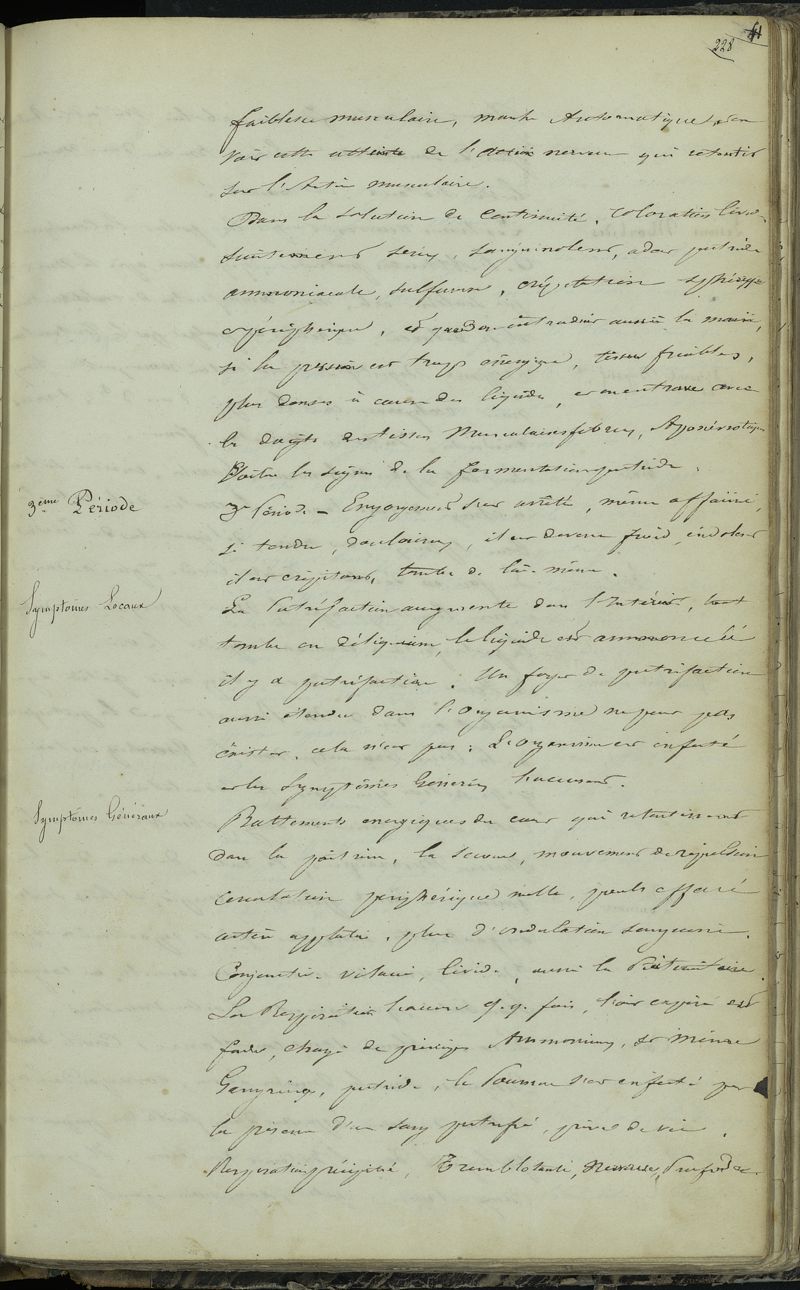 228
faiblesse musculaire, marche Automatique, 
Voir cette atteinte de l'action nerveuse qui retentit
sur l'Action musculaire.
Dans la solution de Continuité, Coloration livide
suintement séreux, sanguinolent, odeur putride
ammoniacale, sulfureuse, crépitation
et périphérique, introduire la main,
si la pression est trop énergique, tissus friables,
plus denses à cause des liquides, et on entraine avec
les doigts des tissus Musculaires fibreux, Aponévrotiques
Voilà les signes de la fermentation putride.
3eme Période
3e Période – Engorgement s'est arrêté, même affaissé,
si tendu, douloureux, il est devenu froid, indolent
il est crépitant, tombe de lui-même.
Symptômes Locaux
La Putréfaction augmente dans l'Intérieur, tout
tombe en déliquium, le liquide est ammoniacal
il y a putréfaction. Un foyer de putréfaction
aussi étendu dans l'organisme ne peut pas
exister, cela n'est pas; L'organisme est infecté
et les Symptômes Généraux s'accusent.
Symptômes Généraux
Battements énergiques du cœur qui retentissent
dans la poitrine, la secoue, mouvement de répulsion
circulation périphérique nulle, pouls effacé
artère applatie, plus d'ondulation sanguine.
Conjonctive livide, aussi la Pituitaire.
La Respiration q.q. fois, l'air expiré est
froid, chargé de principes Ammoniacaux, et même
Gangréneux, putride, le Poumon s'est infecté par
la présence d'un sang putréfié, privé de vie.
Respiration précipitée, Tremblotante, Nerveuse, Profonde